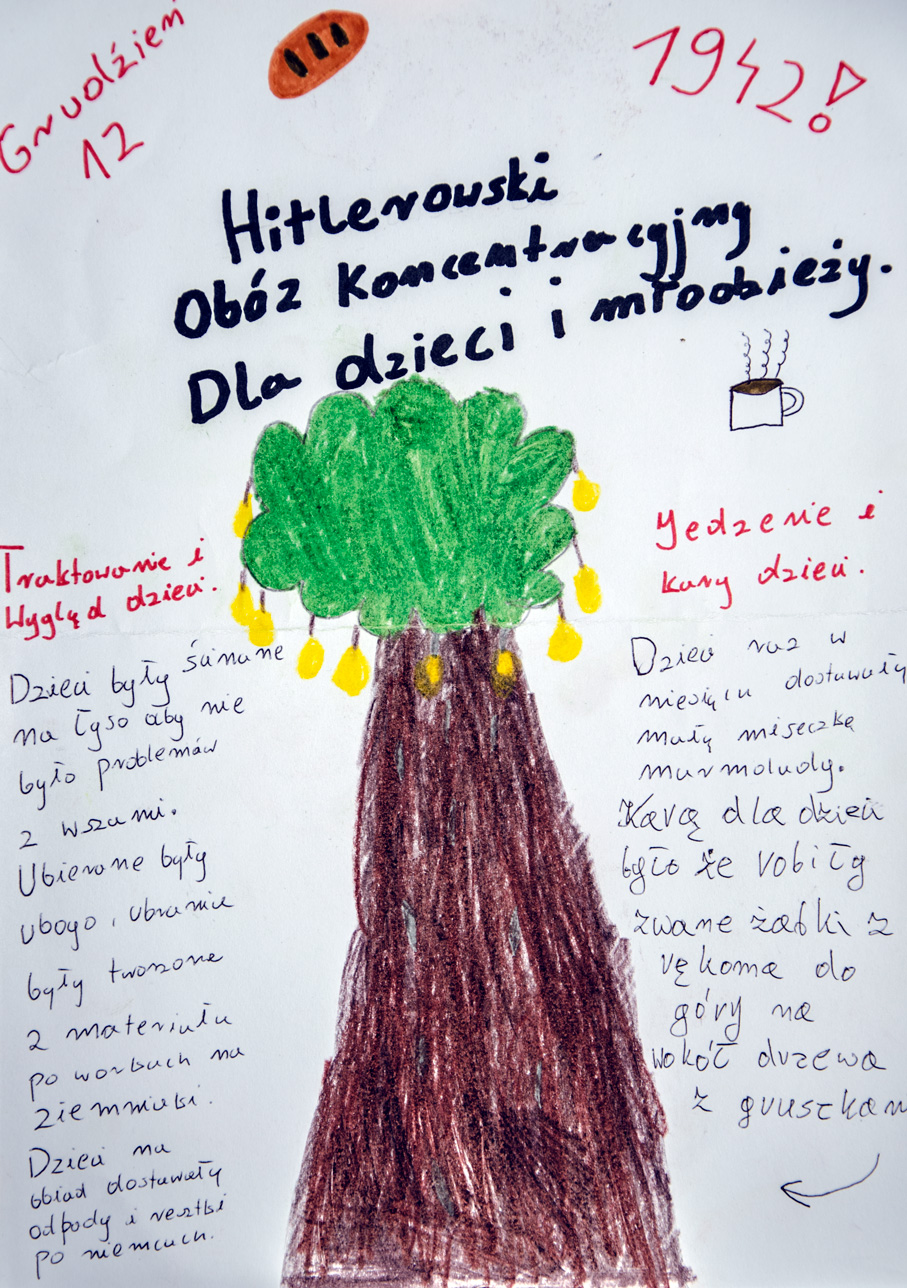 Grudźień
12
1942!
Hitlerowski
Obóz Koncentracyjny
Dla dzieci i młodzieży.
Traktowanie i
Wygląd dzieci.
Dzieci były ścinane
na łyso aby nie
było problemów
z wszami.
Ubierane były
ubogo, ubrania
były tworzone
z materiału
po workach na
ziemniaki.
Dzieci na
obiad dostawały
odpady i resztki
po niemcach.
Jedzenie i
kary dzieci.
Dzieci raz w
miesiącu dostawały
małą miseczkę
marmolady.
Karą dla dzieci
było że robiły
zwane żabki z
rękoma do
góry na
wokół drzewa
z gruszkam